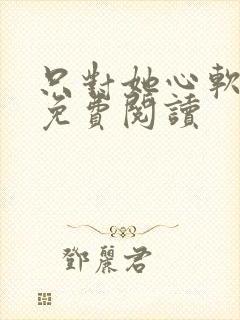 只對她心軟
免費閱讀
鄧麗君